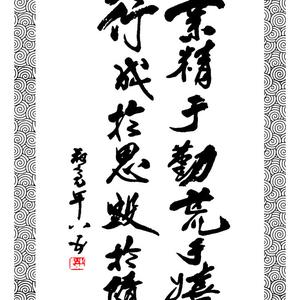 業精于勤荒于嬉
行成於思毀於隨